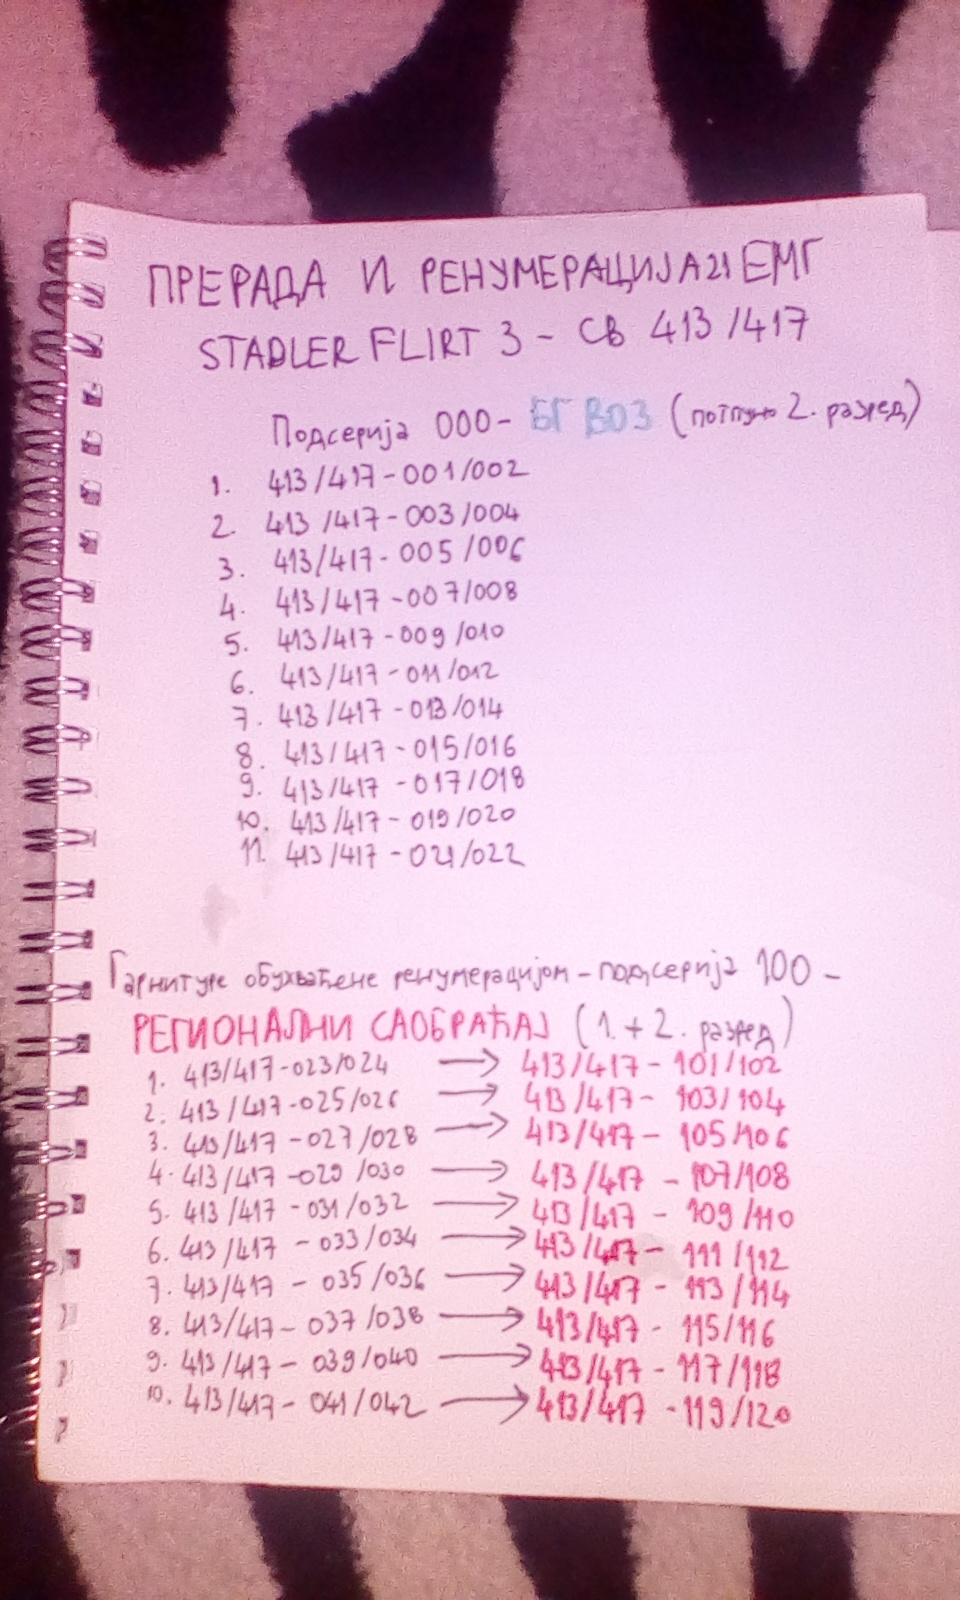 ПРЕРАДА И РЕНУМЕРАЦИЈА 21 ЕМГ
STADLER FLIRT 3 - СВ 413/417
Подсерија 000 - БГ ВОЗ (потпуно 2. разред)
1. 413/417-001/002
2. 413/417-003/004
3. 413/417-005/006
4. 413/417-007/008
5. 413/417-009/010
6. 413/417-011/012
7. 413/417-013/014
8. 413/417-015/016
9. 413/417-017/018
10. 413/417-019/020
11. 413/417-021/022
Гарнитуре обухваћене ренумерацијом - подсерија 100 -
РЕГИОНАЛНИ САОБРАЋАЈ (1. + 2. разред)
1. 413/417-023/024 → 413/417-101/102
2. 413/417-025/026 → 413/417-103/104
3. 413/417-027/028 → 413/417-105/106
4. 413/417-029/030 → 413/417-107/108
5. 413/417-031/032 → 413/417-109/110
6. 413/417-033/034 → 413/417-111/112
7. 413/417-035/036 → 413/417-113/114
8. 413/417-037/038 → 413/417-115/116
9. 413/417-039/040 → 413/417-117/118
10. 413/417-041/042 → 413/417-119/120